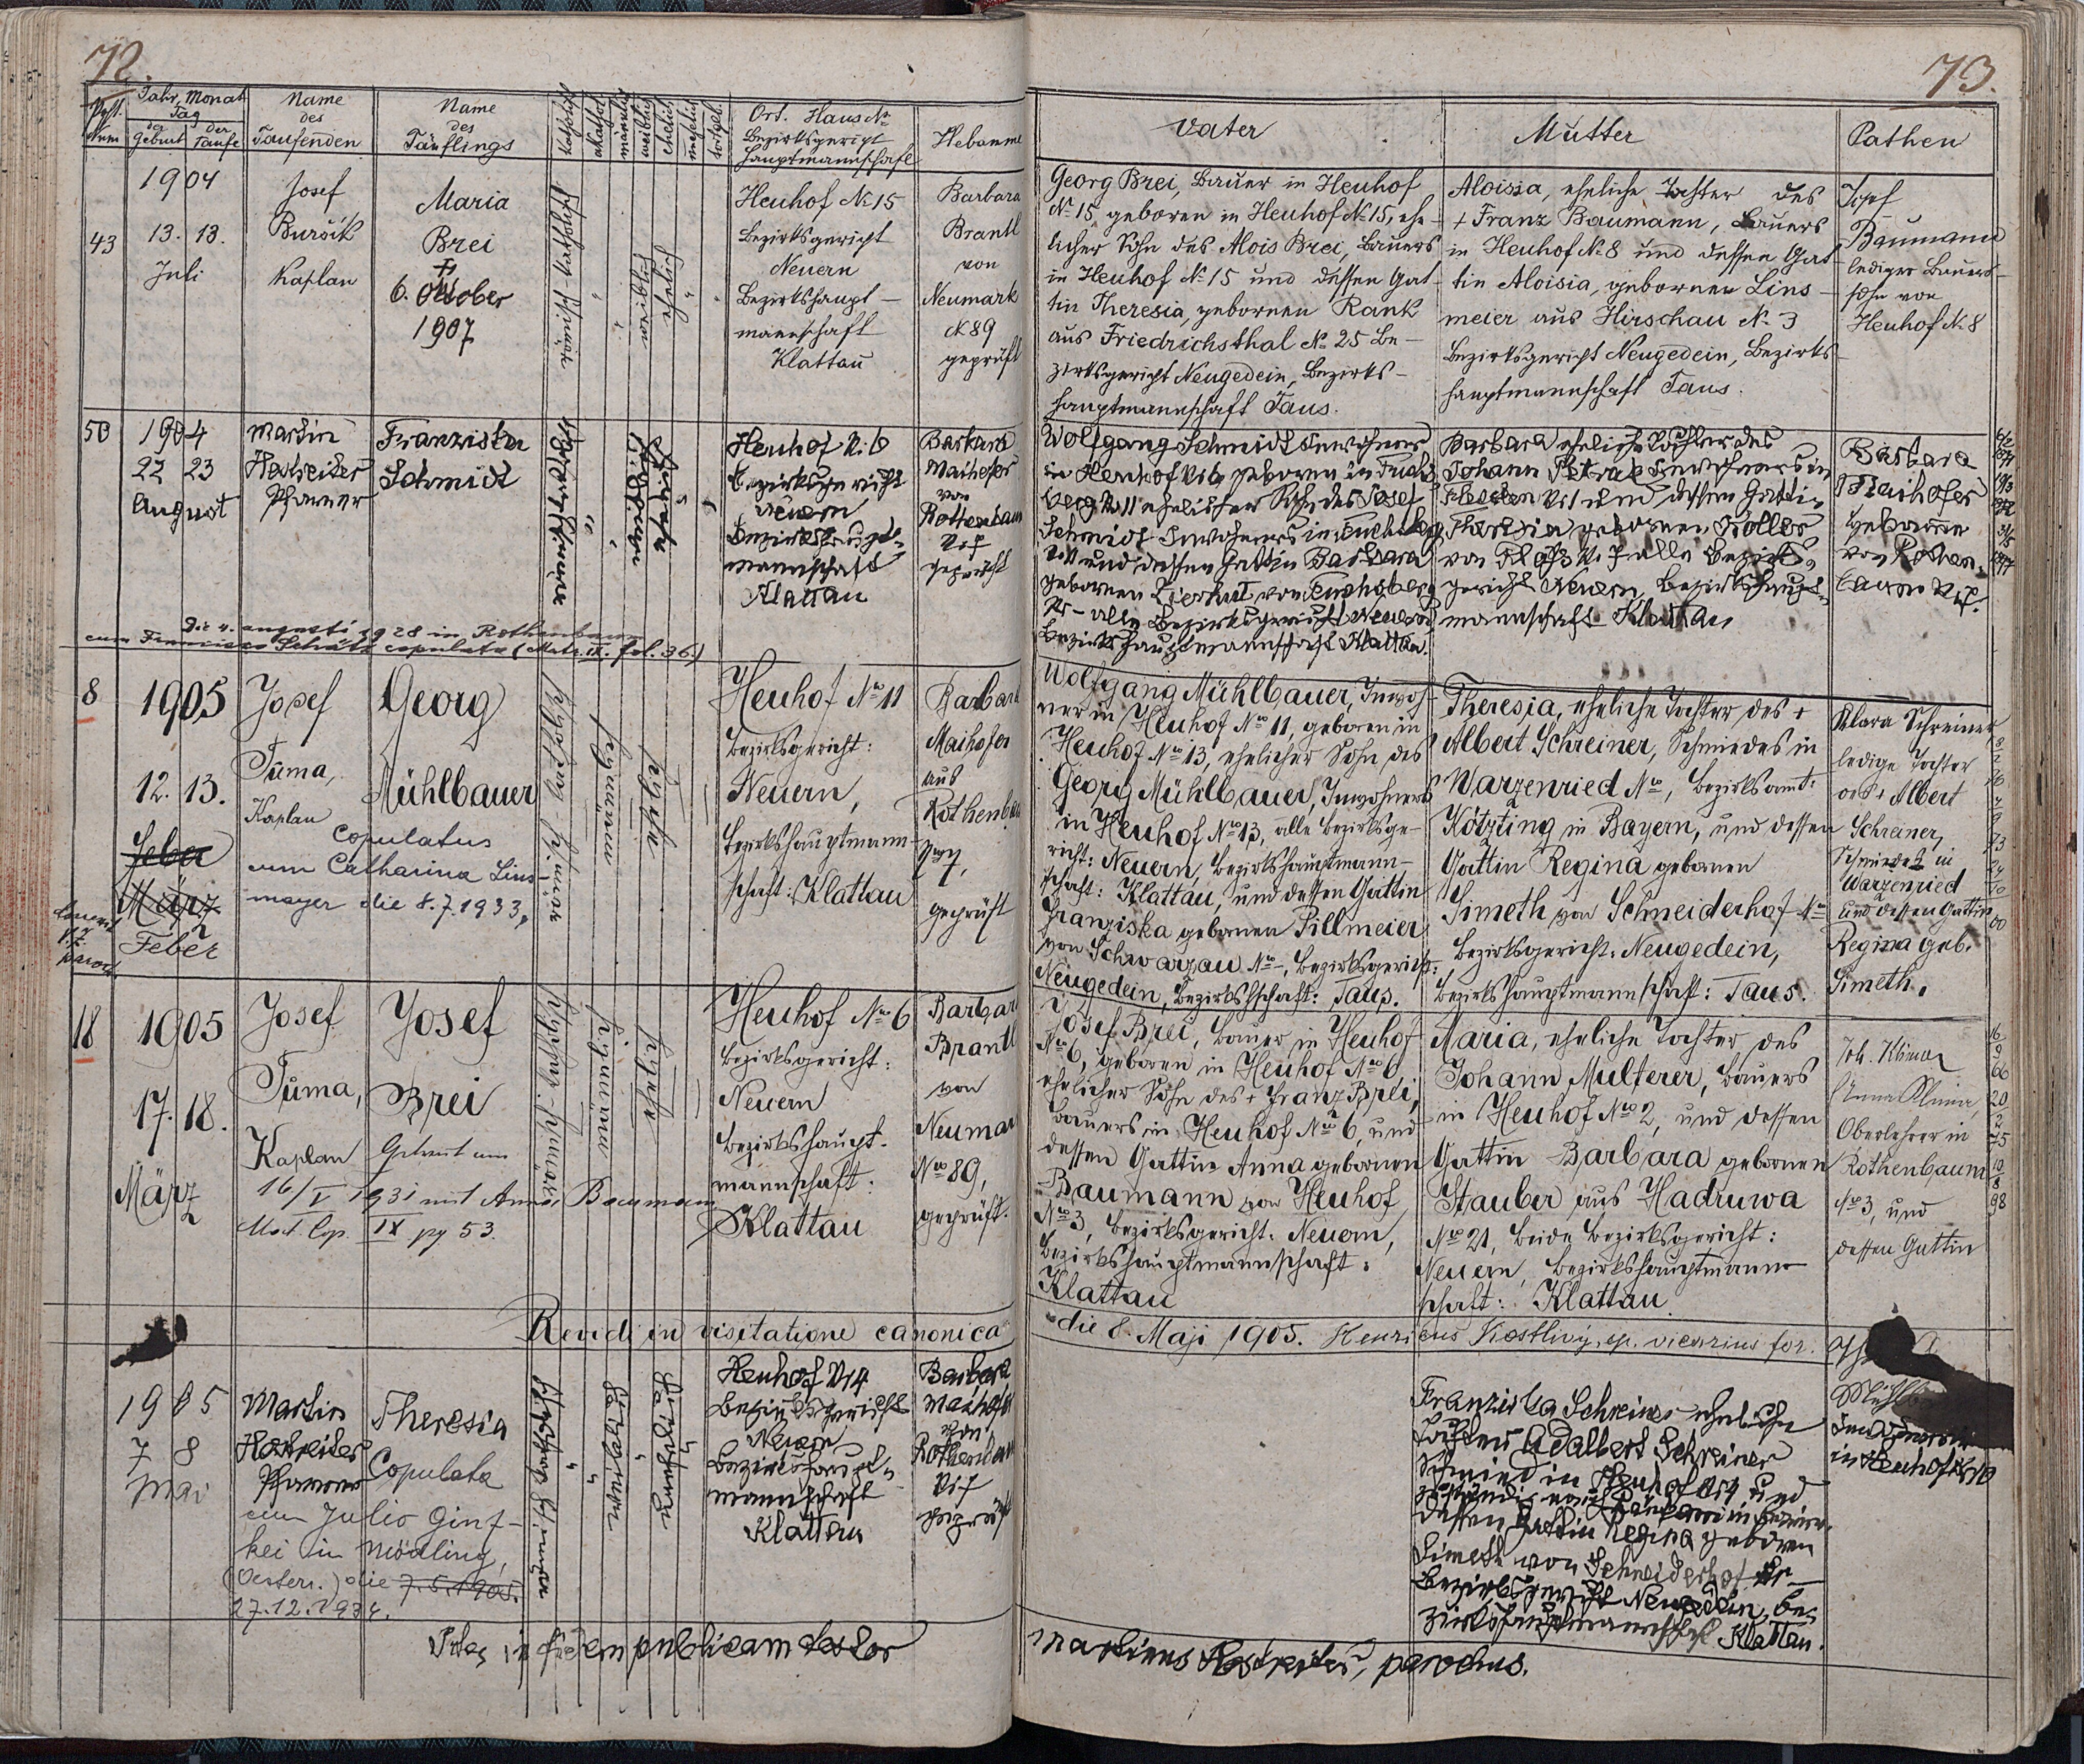 72.
Post. Num
Jahr, Monat
Tag
der Geburt
der Taufe
Name
des
Taufenden
Name
des
Täuflings
katholisch
akathol.
männlich
weiblich
ehelich
unehelich
todtgeb.
Ort. Haus No
Bezirksgericht
Hauptmannschaft
Hebamme
43
1904
13. 13.
Juli
Josef
Buršík
Kaplan
Maria
Brei
6. Oktober
1907
Heuhof No 15
Bezirksgericht
Neuern
Bezirkshaupt-
mannschaft
Klattau
Barbara
Brantl
von
Neumark
No 89
geprüft
50
1904
22 23
August
Martin
Hostreiter
Pfarrer
Franziska
Schmidt
Heuhof No 6
Bezirksgericht
Neuern
Bezirkshaupt-
mannschaft
Klattau
Barbara
Maihofer
von
Rottenbaum
No 7
geprüft
Die 4. augusti 1928 in Rothenbaum
cum Francisco Schätz copulata (Matr. IX. fol. 36)
8
1905
12. 13.
Feber
März
Feber
Josef
Tuma,
Kaplan
Georg
Mühlbauer
copulatus
cum Catharina Lins-
mayer die 8.7.1933,
Heuhof No 11
Bezirksgericht:
Neuern,
Bezirkshauptmann-
schaft: Klattau
Barbara
Maihofer
aus
Rothenbaum
No 7,
geprüft
18
1905
17. 18.
März
Josef
Tuma,
Kaplan
Josef
Brei
Getraut am
16/V 1931 mit Anna Baumann
Mat. Cop. IX pg 53.
Heuhof No 6
Bezirksgericht:
Neuern
Bezirkshaupt-
mannschaft:
Klattau
Barbara
Brantl
von
Neumark
No 89,
geprüft.
Revidi in visitatione canonica
1905
7 8
Mai
Martin
Hostreiter
Pfarrer
Theresia
Copulata
cum Julio Ginz-
kei in Mödling,
(Oesterr.) die 7.5.1905.
27.12.1934.
Heuhof No 4
Bezirksgericht
Neuern
Bezirkshaupt-
mannschaft
Klattau
Barbara
Maihofer
von
Rothenbaum
No 7
geprüft
in fidem publicam testor
73.
Vater
Mutter
Pathen
Georg Brei, Bauer in Heuhof
No 15, geboren in Heuhof No 15, ehe-
licher Sohn des Alois Brei, Bauers
in Heuhof No 15 und dessen Gat-
tin Theresia, gebornen Rank
aus Friedrichsthal No 25 Be-
zirksgericht Neugedein, Bezirks-
hauptmannschaft Taus.
Aloisia, eheliche Tochter des
+ Franz Baumann, Bauers
in Heuhof No 8 und dessen Gat-
tin Aloisia, gebornen Lins-
meier aus Hirschau No 3
Bezirksgericht Neugedein, Bezirks-
hauptmannschaft Taus.
Josef
Baumann
lediger Bauers-
sohn von
Heuhof No 8
Wolfgang Schmidt Inwohner
in Heuhof No 6 geboren in Fuchs-
berg No 11 ehelicher Sohn des Josef
Schmidt Inwohners in Fuchsberg
No 11 und dessen Gattin Barbara
gebornen Zierhut von Fuchsberg
No - alle Bezirksgericht Neuern
Bezirkshauptmannschaft Klattau.
Barbara eheliche Tochter des
Johann Inwohners in
No 1 und dessen Gattin
Theresia gebornen Koller
von No 7 alle Bezirks-
gericht Neuern, Bezirkshaupt-
mannschaft Klattau
Barbara
Maihofer
Hebamme
von Rothen-
baum No 7.
Wolfgang Mühlbauer, Inwoh-
ner in Heuhof No 11, geboren in
Heuhof No 13, ehelicher Sohn des
Georg Mühlbauer, Inwohners
in Heuhof No 13, alle Bezirksge-
richt: Neuern, Bezirkshauptmann-
schaft: Klattau, und dessen Gattin
Franziska gebornen Pillmeier
von Schwarzau No -, Bezirksgericht:
Neugedein, Bezirkshschaft: Taus.
Theresia, eheliche Tochter des +
Albert Schreiner, Schmiedes in
Warzenried No, Bezirksamt:
Kötzting in Bayern, und dessen
Gattin Regina gebornen
Simeth von Schneiderhof No -
Bezirksgericht: Neugedein,
Bezirkshauptmannschaft: Taus.
Klara Schreiner
ledige Tochter
des + Albert
Schreiner,
Schmiedes in
Warzenried
und dessen Gattin
Regina geb.
Simeth.
Josef Brei, Bauer in Heuhof
No 6, geboren in Heuhof No 6,
ehelicher Sohn des + Franz Brei,
Bauers in Heuhof No 6, und
dessen Gattin Anna gebornen
Baumann von Heuhof
No 3, Bezirksgericht: Neuern,
Bezirkshauptmannschaft:
Klattau
Maria, eheliche Tochter des
Johann Multerer, Bauers
in Heuhof No 2, und dessen
Gattin Barbara gebornen
Stauber aus Hadruwa
No 21, beide Bezirksgericht:
Neuern, Bezirkshauptmann-
schaft: Klattau.
Joh. Klima
Anna Klima,
Oberlehrer in
Rothenbaum
No 3, und
dessen Gattin
die 8. Maji 1905. Henricus Kostlivý, ep. vicarius for.
Franziska Schreiner eheliche
Tochter Adalbert Schreiner
Schmied in Heuhof No 4 und
dessen Gattin Regina geboren
Simeth von Schneiderhof No -
Bezirksgericht Neugedein, Be-
zirkshauptmannschaft Klattau.
in Heuhof No 10
Martinus Hostreiter, parochus.